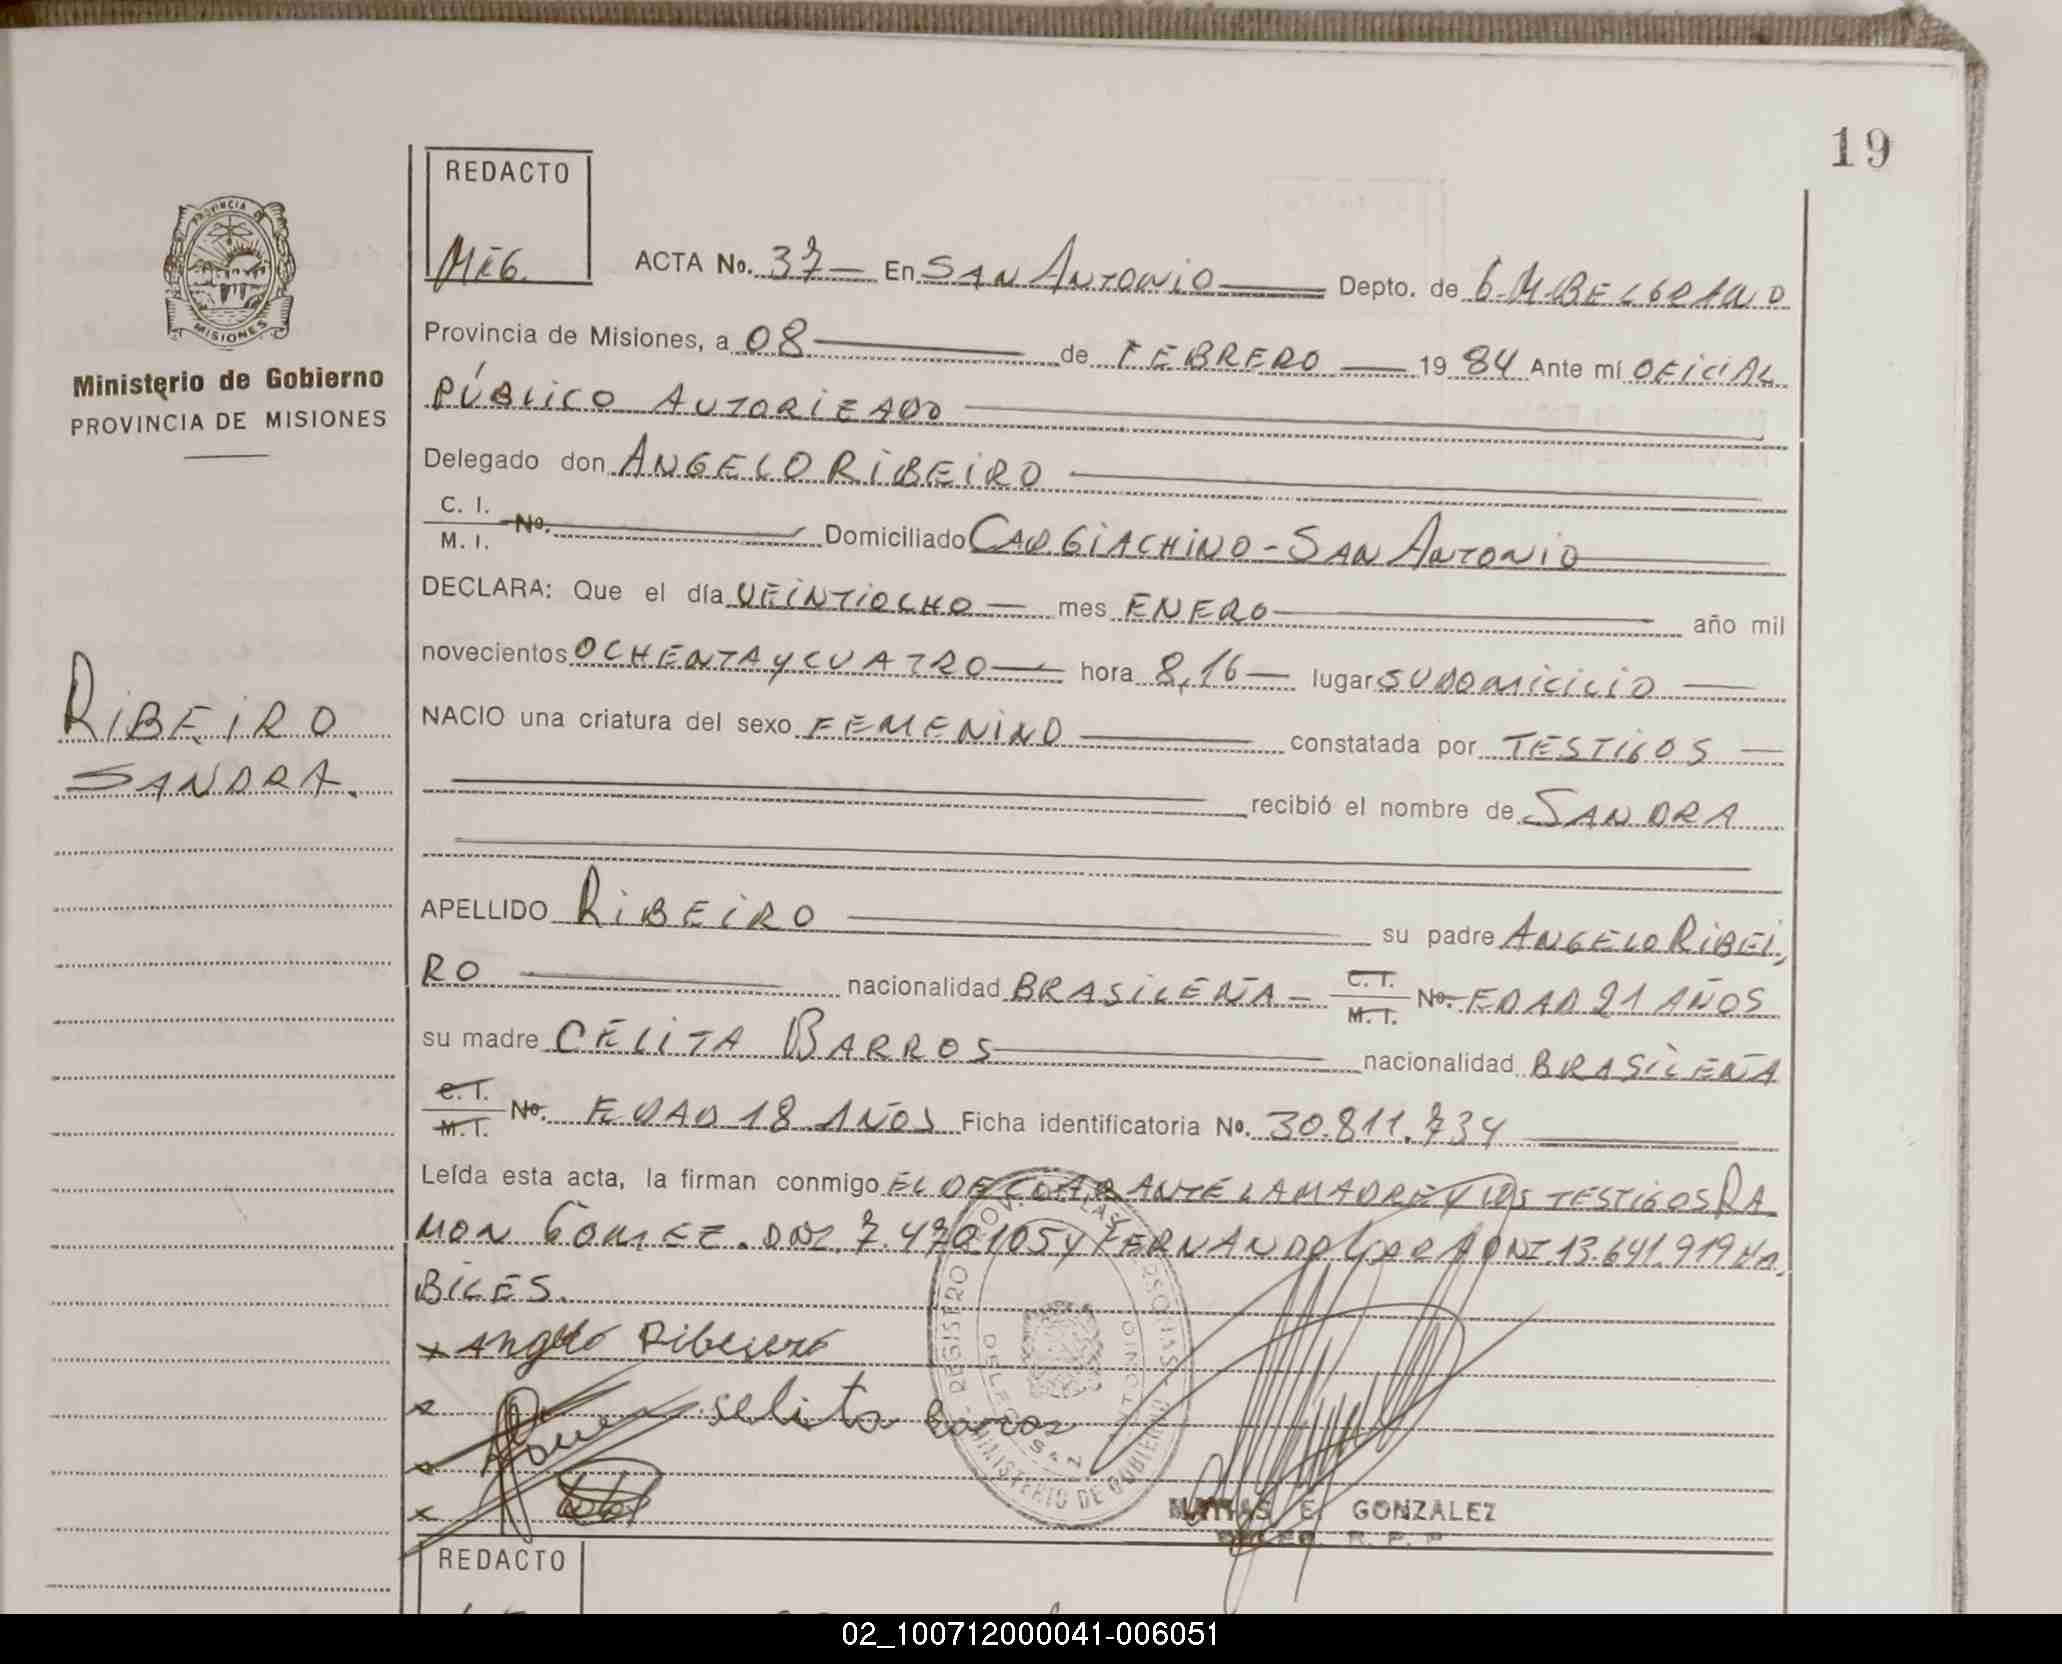 19
REDACTO
MEG.
ACTA No. 37 En SAN ANTONIO Depto. de G.M.BELGRANO
PROVINCIA DE MISIONES
Ministerio de Gobierno
PROVINCIA DE MISIONES
Provincia de Misiones, a 08 de FEBRERO 1984 Ante mí OFICIAL
PÚBLICO AUTORIZADO
Delegado don ANGELO RIBEIRO
C. I.
M. I. No. Domiciliado CAD GIACHINO - SAN ANTONIO
DECLARA: Que el día VEINTIOCHO mes ENERO año mil
novecientos OCHENTA y CUATRO hora 8,16 lugar SU DOMICILIO
RIBEIRO
SANDRA.
NACIO una criatura del sexo FEMENINO constatada por TESTIGOS
recibió el nombre de SANDRA
APELLIDO RIBEIRO su padre ANGELO RIBEI,
RO nacionalidad BRASILEÑA - C. I. M. I. No. EDAD 21 AÑOS
su madre CELITA BARROS nacionalidad BRASILEÑA
C. I. M. I. No. EDAD 18 AÑOS Ficha identificatoria No. 30.811.734
Leída esta acta, la firman conmigo EL DECLARANTE LA MADRE Y LOS TESTIGOS RA
MON GOMEZ. DNI. 7.470.105 y FERNANDO DNI. 13.641.919 HA,
BILES.
x Angelo Ribeiro
x selita Barros
x
x
MINISTERIO DE GOBIERNO
MATIAS E. GONZALEZ
REDACTO
02_100712000041-006051